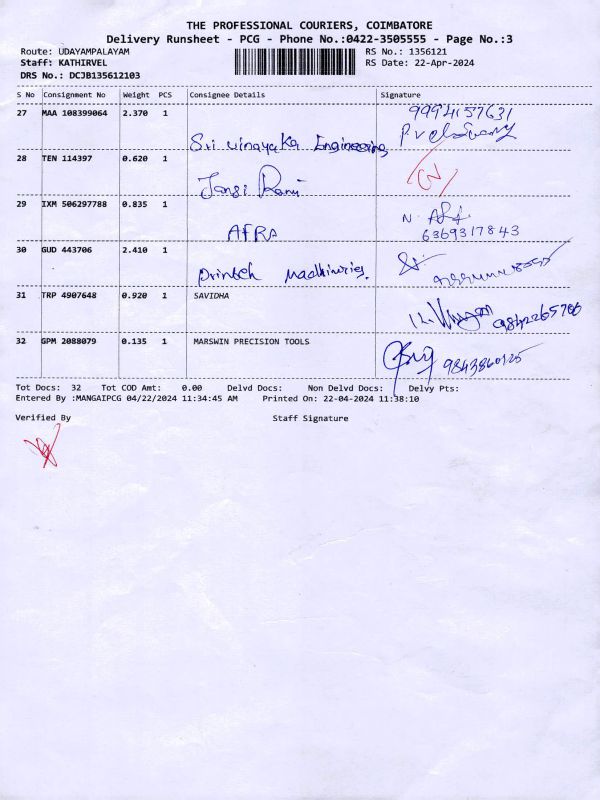 THE PROFESSIONAL COURIERS, COIMBATORE
Delivery Runsheet - PCG - Phone No.:0422-3505555 - Page No.:3
Route: UDAYAMPALAYAM RS No.: 1356121
Staff: KATHIRVEL RS Date: 22-Apr-2024
DRS No.: DCJB135612103
S No Consignment No Weight PCS Consignee Details Signature
27 MAA 108399064 2.370 1 9994157631
Sri Vinayaka Engineering
28 TEN 114397 0.620 1
Jansi Rani
29 IXM 506297788 0.835 1 N.
AFRA 6369317843
30 GUD 443706 2.410 1
Printech Machineries.
31 TRP 4907648 0.920 1 SAVIDHA
9842265706
32 GPM 2088079 0.135 1 MARSWIN PRECISION TOOLS
Tot Docs: 32 Tot COD Amt: 0.00 Delvd Docs: Non Delvd Docs: Delvy Pts:
Entered By :MANGAIPCG 04/22/2024 11:34:45 AM Printed On: 22-04-2024 11:38:10
Verified By Staff Signature